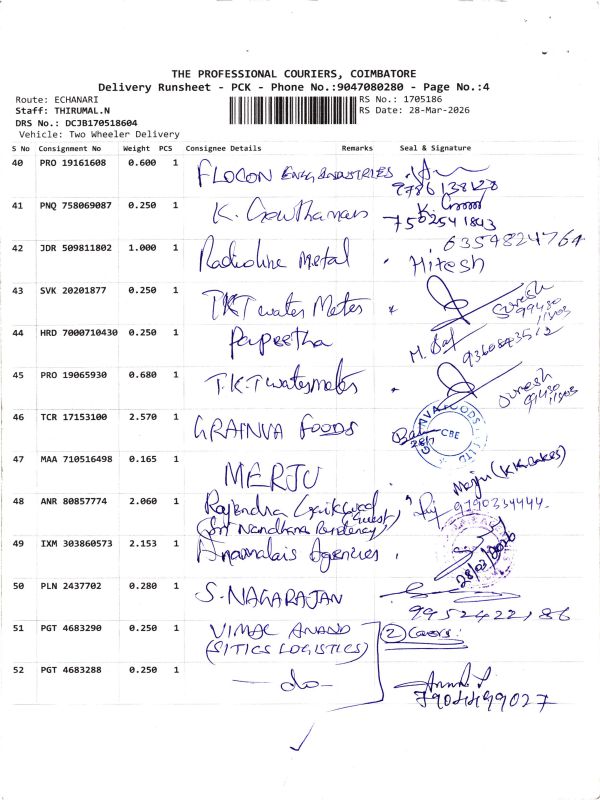 THE PROFESSIONAL COURIERS, COIMBATORE
Delivery Runsheet - PCK - Phone No.:9047080280 - Page No.:4
Route: ECHANARI
RS No.: 1705186
Staff: THIRUMAL.N
RS Date: 28-Mar-2026
DRS No.: DCJB170518604
Vehicle: Two Wheeler Delivery
S No Consignment No Weight PCS Consignee Details Remarks Seal & Signature
40 PRO 19161608 0.600 1 FLOCON Engg INDUSTRIES
9786138128
41 PNQ 758069087 0.250 1 K. Gowthaman
7502541843
42 JDR 509811802 1.000 1 Radioline Metal Hitesh
6354824764
43 SVK 20201877 0.250 1 TKT water Meter Suresh
44 HRD 7000710430 0.250 1
45 PRO 19065930 0.680 1 T.K.T watermeter Suresh
46 TCR 17153100 2.570 1 GRAINVA FOODS CBE
47 MAA 710516498 0.165 1 MERJU
48 ANR 80857774 2.060 1 Rajendra Gaikwad (Guest) 9790334444
(Sri Nandhana Residency)
49 IXM 303860573 2.153 1 Annamalais Agencies 28/03/2026
50 PLN 2437702 0.280 1 S. NAGARAJAN
9952422186
51 PGT 4683290 0.250 1 VIMAL ANAND (2) Covers
(SITICS LOGISTICS)
52 PGT 4683288 0.250 1 — do —
7904499027